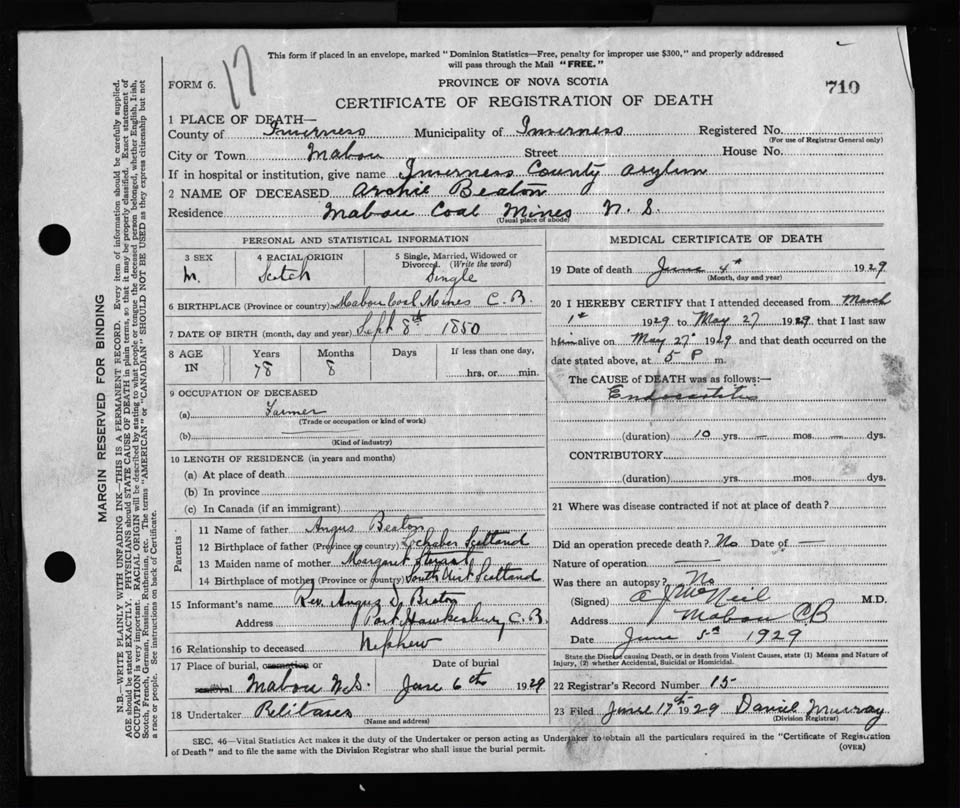 This form if placed in an envelope, marked "Dominion Statistics—Free, penalty for improper use $300," and properly addressed
will pass through the Mail "FREE."
17
FORM 6.
PROVINCE OF NOVA SCOTIA
710
CERTIFICATE OF REGISTRATION OF DEATH
1 PLACE OF DEATH—
County of Inverness Municipality of Inverness Registered No.
(For use of Registrar General only)
City or Town Mabou Street House No.
If in hospital or institution, give name Inverness County Asylum
2 NAME OF DECEASED Archie Beaton
Residence Mabou Coal Mines N. S.
(Usual place of abode)
PERSONAL AND STATISTICAL INFORMATION
3 SEX
M.
4 RACIAL ORIGIN
Scotch
5 Single, Married, Widowed or
Divorced. (Write the word)
Single
6 BIRTHPLACE (Province or country) Mabou Coal Mines C. B.
7 DATE OF BIRTH (month, day and year) Sept 8th 1850
8 AGE
IN
Years
78
Months
8
Days
If less than one day,
hrs. or min.
9 OCCUPATION OF DECEASED
(a) Farmer
(Trade or occupation or kind of work)
(b)
(Kind of industry)
10 LENGTH OF RESIDENCE (in years and months)
(a) At place of death
(b) In province
(c) In Canada (if an immigrant)
Parents
11 Name of father Angus Beaton
12 Birthplace of father (Province or country) Lochaber Scotland
13 Maiden name of mother Margaret
14 Birthplace of mother (Province or country) South Uist Scotland
15 Informant's name Rev. Angus D. Beaton
Address Port Hawkesbury C. B.
16 Relationship to deceased Nephew
17 Place of burial, cremation or
removal Mabou N.S.
Date of burial
June 6th 1929
18 Undertaker
(Name and address)
MEDICAL CERTIFICATE OF DEATH
19 Date of death June 4th 1929
(Month, day and year)
20 I HEREBY CERTIFY that I attended deceased from March
1st 1929 to May 27 1929 that I last saw
him alive on May 27 1929 and that death occurred on the
date stated above, at 5 P m.
The CAUSE of DEATH was as follows:—
Endocarditis
(duration) 10 yrs. — mos. — dys.
CONTRIBUTORY
(duration) yrs. mos. dys.
21 Where was disease contracted if not at place of death?
Did an operation precede death? No Date of —
Nature of operation —
Was there an autopsy? No
(Signed) McNeil M.D.
Address Mabou CB
Date June 5th 1929
State the Disease causing Death, or in death from Violent Causes, state (1) Means and Nature of
Injury, (2) whether Accidental, Suicidal or Homicidal.
22 Registrar's Record Number 15
23 Filed June 17th 1929 Daniel Murray
(Division Registrar)
SEC. 46—Vital Statistics Act makes it the duty of the Undertaker or person acting as Undertaker to obtain all the particulars required in the "Certificate of Registration
of Death" and to file the same with the Division Registrar who shall issue the burial permit.
(OVER)
MARGIN RESERVED FOR BINDING
N.B.—WRITE PLAINLY WITH UNFADING INK—THIS IS A PERMANENT RECORD. Every item of information should be carefully supplied.
AGE should be stated EXACTLY. PHYSICIANS should STATE CAUSE OF DEATH in plain terms, so that it may be properly classified. Exact statement of
OCCUPATION is very important. RACIAL ORIGIN will be described by stating to what people or tongue the deceased person belonged, whether English, Irish,
Scotch, French, German, Russian, Ruthenian, etc. The terms "AMERICAN" or "CANADIAN" SHOULD NOT BE USED as they express citizenship but not
a race or people. See instructions on back of Certificate.